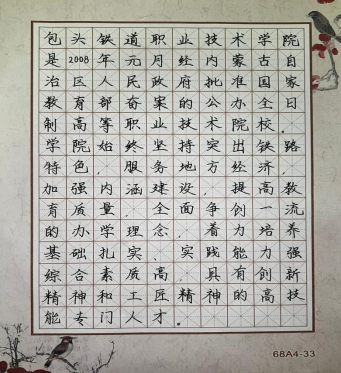 包头铁道职业技术学院
是2008年元月经内蒙古自
治区人民政府批准国家
教育部备案的公办全日
制高等职业技术院校。
学院始终坚持突出铁路
特色，服务地方经济，
加强内涵建设，提高教
育质量，全面争创一流
的办学理念，着力培养
基础扎实、实践能力强
综合素质高，具有创新
精神和工匠精神的高技
能专门人才。
68A4-33